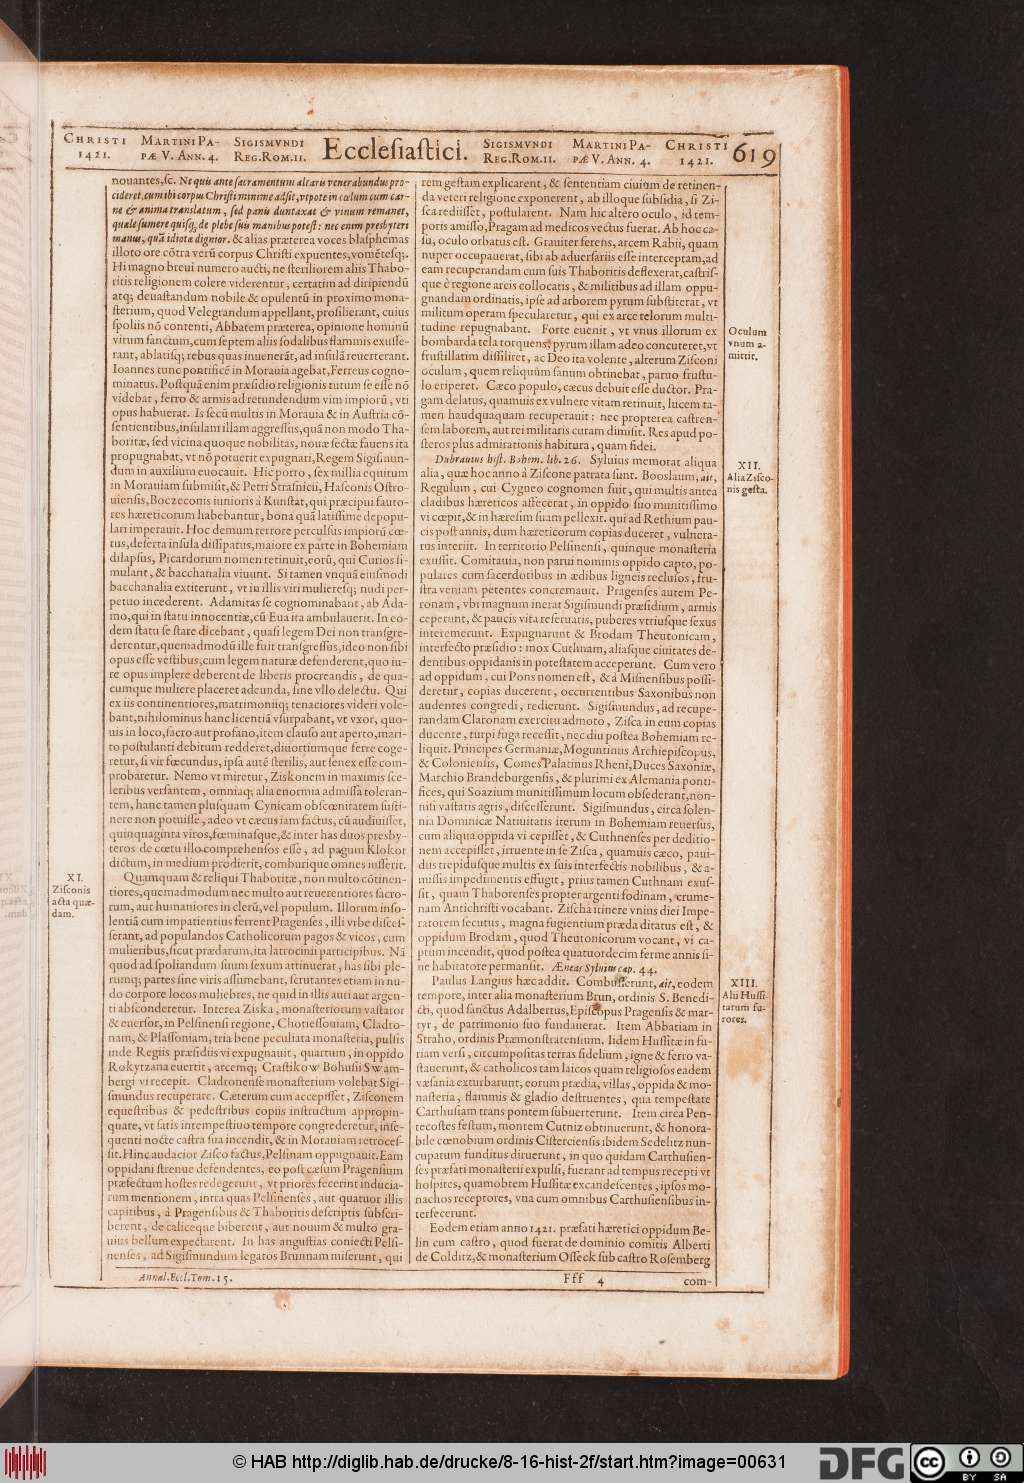 CHRISTI 1421. MARTINI PA-PÆ V. ANN. 4. SIGISMVNDI REG. ROM. II. Ecclesiastici. SIGISMVNDI REG. ROM. II. MARTINI PA-PÆ V. ANN. 4. CHRISTI 1421. 619
nouantes, sc. Ne quis ante sacramentum altaris venerabundus pro-
cideret, cum ibi corpus Christi minime adsit, vtpote in cœlum cum car-
ne & anima translatum, sed panis duntaxat & vinum remanet,
quale sumere quisq; de plebe suis manibus potest: nec enim presbyteri
manus, quã idiotæ dignior. & alias præterea voces blasphemas
illoto ore cōtra verũ corpus Christi expuentes, vomētesq;.
Hi magno breui numero aucti, ne steriliorem aliis Thabo-
ritis religionem colere viderentur, certatim ad diripiendũ
atq; deuastandum nobile & opulentũ in proximo mona-
sterium, quod Velegrandum appellant, prosilierant, cuius
spoliis nō contenti, Abbatem præterea, opinione hominũ
virum sanctum, cum septem aliis sodalibus flammis exusse-
rant, ablatisq; rebus quas inuenerãt, ad insulã reuerterant.
Ioannes tunc pontificē in Morauia agebat, Ferreus cogno-
minatus. Postquã enim præsidio religionis tutum se esse nō
videbat, ferro & armis ad retundendum vim impiorũ, vti
opus habuerat. Is secũ multis in Morauia & in Austria cō-
sentientibus, insulam illam aggressus, quã non modo Tha-
boritæ, sed vicina quoque nobilitas, nouæ sectæ fauens ita
propugnabat, vt nō potuerit expugnari, Regem Sigismun-
dum in auxilium euocauit. Hic porro, sex millia equitum
in Morauiam submisit, & Petri Strasnicii, Hasconis Ostro-
uiensis, Boczeconis iunioris à Kunstat, qui præcipui fauto-
res hæreticorum habebantur, bona quã latissime depopu-
lari imperauit. Hoc demum terrore perculsus impiorũ cœ-
tus, deserta insula dissipatus, maiore ex parte in Bohemiam
dilapsus, Picardorum nomen retinuit, eorũ, qui Curios si-
mulant, & bacchanalia viuunt. Si tamen vnquã eiusmodi
bacchanalia extiterunt, vt in illis viri mulieresq; nudi per-
petuo incederent. Adamitas se cognominabant, ab Ada-
mo, qui in statu innocentiæ, cũ Eua ita ambulauerit. In eo-
dem statu se stare dicebant, quasi legem Dei non transgre-
derentur, quemadmodũ ille fuit transgressus, ideo non sibi
opus esse vestibus, cum legem naturæ defenderent, quo iu-
re opus implere deberent de liberis procreandis, de qua-
cumque muliere placeret adeunda, sine vllo delectu. Qui
ex iis continentiores, matrimoniiq; tenaciores videri vole-
bant, nihilominus hanc licentiã vsurpabant, vt vxor, quo-
uis in loco, sacro aut profano, item clauso aut aperto, mari-
to postulanti debitum redderet, diuortiumque ferre coge-
retur, si vir fœcundus, ipsa autē sterilis, aut senex esse com-
probaretur. Nemo vt miretur, Ziskonem in maximis sce-
leribus versantem, omniaq; alia enormia admissa toleran-
tem, hanc tamen plusquam Cynicam obscœnitatem susti-
nere non potuisse, adeo vt cæcus iam factus, cũ audiuisset,
quinquaginta viros, fœminasque, & inter has duos presby-
teros de cœtu illo comprehensos esse, ad pagum Klokot
dictum, in medium prodierit, comburique omnes iusserit.
XI. Zisconis acta quæ-dam.
Quamquam & reliqui Thaboritæ, non multo cōtinen-
tiores, quemadmodum nec multo aut reuerentiores sacro-
rum, aut humaniores in clerũ, vel populum. Illorum inso-
lentiã cum impatientius ferrent Pragenses, illi vrbe disces-
serant, ad populandos Catholicorum pagos & vicos, cum
mulieribus, sicut prædarum, ita latrocinii participibus. Nã
quod ad spoliandum suum sexum attinuerat, has sibi ple-
rumq; partes sine viris assumebant, scrutantes etiam in nu-
do corpore locos muliebres, ne quid in illis auri aut argen-
ti absconderetur. Interea Ziska, monasteriorum vastator
& euersor, in Pelsinensi regione, Chotiessouiam, Cladro-
nam, & Plassoniam, tria bene peculiata monasteria, pulsis
inde Regiis præsidiis vi expugnauit, quartum, in oppido
Rokytzana euertit, arcemq; Crastikow Bohusii Swam-
bergi vi recepit. Cladronense monasterium volebat Sigi-
smundus recuperare. Cæterum cum accepisset, Zisconem
equestribus & pedestribus copiis instructum appropin-
quare, vt satis intempestiuo tempore congrederetur, inse-
quenti nocte castra sua incendit, & in Morauiam retroces-
sit. Hinc audacior Zisco factus, Pelsinam oppugnauit. Eam
oppidani strenue defendentes, eo post cæsum Pragensium
præfectum hostes redegerunt, vt priores fecerint inducia-
rum mentionem, intra quas Pelsinenses, aut quatuor illis
capitibus, à Pragensibus & Thaboritis descriptis subscri-
berent, de caliceque biberent, aut nouum & multo gra-
uius bellum expectarent. In has angustias coniecti Pelsi-
nenses, ad Sigismundum legatos Brunnam miserunt, qui
rem gestam explicarent, & sententiam ciuium de retinen-
da veteri religione exponerent, ab illoque subsidia, si Zi-
sca rediisset, postularent. Nam hic altero oculo, id tem-
poris amisso, Pragam ad medicos vectus fuerat. Ab hoc ca-
su, oculo orbatus est. Grauiter ferens, arcem Rabii, quam
nuper occupauerat, sibi ab aduersariis esse interceptam, ad
eam recuperandam cum suis Thaboritis deflexerat, castris-
que è regione arcis collocatis, & militibus ad illam oppu-
gnandam ordinatis, ipse ad arborem pyrum substiterat, vt
militum operam specularetur, qui ex arce telorum multi-
tudine repugnabant. Forte euenit, vt vnus illorum ex
bombarda tela torquens, pyrum illam adeo concuteret, vt
frustillatim dissiliret, ac Deo ita volente, alterum Zisconi
oculum, quem reliquũm sanum obtinebat, paruo frustu-
lo eriperet. Cæco populo, cæcus debuit esse ductor. Pra-
gam delatus, quamuis ex vulnere vitam retinuit, lucem ta-
men haudquaquam recuperauit: nec propterea castren-
sem laborem, aut rei militaris curam dimisit. Res apud po-
steros plus admirationis habitura, quam fidei.
Oculum vnum a-mittit.
Dubrauius hist. Bohem. lib. 26. Syluius memorat aliqua
alia, quæ hoc anno à Ziscone patrata sunt. Booslaum, ait,
Regulum, cui Cygneo cognomen fuit, qui multis antea
cladibus hæreticos affecerat, in oppido suo munitissimo
vi cœpit, & in hæresim suam pellexit. qui ad Rethium pau-
cis post annis, dum hæreticorum copias duceret, vulnera-
tus interiit. In territorio Pelsinensi, quinque monasteria
exussit. Comitauia, non parui nominis oppido capto, po-
pulares cum sacerdotibus in ædibus ligneis reclusos, fru-
stra veniam petentes concremauit. Pragenses autem Pe-
ronam, vbi magnum inerat Sigismundi præsidium, armis
ceperunt, & paucis vita reseruatis, puberes vtriusque sexus
interemerunt. Expugnarunt & Brodam Theutonicam,
interfecto præsidio: mox Cuthnam, aliasque ciuitates de-
dentibus oppidanis in potestatem acceperunt. Cum vero
ad oppidum, cui Pons nomen est, & à Misnensibus possi-
deretur, copias ducerent, occurrentibus Saxonibus non
audentes congredi, redierunt. Sigismundus, ad recupe-
randam Claronam exercitu admoto, Zisca in eum copias
ducente, turpi fuga recessit, nec diu postea Bohemiam re-
liquit. Principes Germaniæ, Moguntinus Archiepiscopus,
& Coloniensis, Comes Palatinus Rheni, Duces Saxoniæ,
Marchio Brandeburgensis, & plurimi ex Alemania ponti-
fices, qui Soazium munitissimum locum obsederant, non-
nisi vastatis agris, discesserunt. Sigismundus, circa solen-
nia Dominicæ Natiuitatis iterum in Bohemiam reuersus,
cum aliqua oppida vi cepisset, & Cuthnenses per deditio-
nem accepisset, irruente in se Zisca, quamuis cæco, paui-
dus trepidusque multis ex suis interfectis nobilibus, & a-
missis impedimentis effugit, prius tamen Cuthnam exus-
sit, quam Thaborenses propter argenti fodinam, crume-
nam Antichristi vocabant. Zischa itinere vnius diei Impe-
ratorem secutus, magna fugientium præda ditatus est, &
oppidum Brodam, quod Theutonicorum vocant, vi ca-
ptum incendit, quod postea quatuordecim ferme annis si-
ne habitatore permansit. Æneas Syluius cap. 44.
XII. Alia Zisco-nis gesta.
Paulus Langius hæc addit. Combusserunt, ait, eodem
tempore, inter alia monasterium Brun, ordinis S. Benedi-
cti, quod sanctus Adalbertus, Episcopus Pragensis & mar-
tyr, de patrimonio suo fundauerat. Item Abbatiam in
Straho, ordinis Præmonstratensium. Iidem Hussitæ in fu-
riam versi, circumpositas terras fidelium, igne & ferro va-
stauerunt, & catholicos tam laicos quam religiosos eadem
væsania exturbarunt, eorum prædia, villas, oppida & mo-
nasteria, flammis & gladio destruentes, qua tempestate
Carthusiam trans pontem subuerterunt. Item circa Pen-
tecostes festum, montem Cutniz obtinuerunt, & honora-
bile cœnobium ordinis Cisterciensis ibidem Sedelitz nun-
cupatum funditus diruerunt, in quo quidam Carthusien-
ses præfati monasterii expulsi, fuerant ad tempus recepti vt
hospites, quamobrem Hussitæ excandescentes, ipsos mo-
nachos receptores, vna cum omnibus Carthusiensibus in-
terfecerunt.
XIII. Alii Hussi-tarum fu-rores.
Eodem etiam anno 1421. præfati hæretici oppidum Be-
lin cum castro, quod fuerat de dominio comitis Alberti
de Colditz, & monasterium Osseck sub castro Rosemberg
Annal. Eccl. Tom. 15. Fff 4 com-
© HAB http://diglib.hab.de/drucke/8-16-hist-2f/start.htm?image=00631
DFG cc BY SA